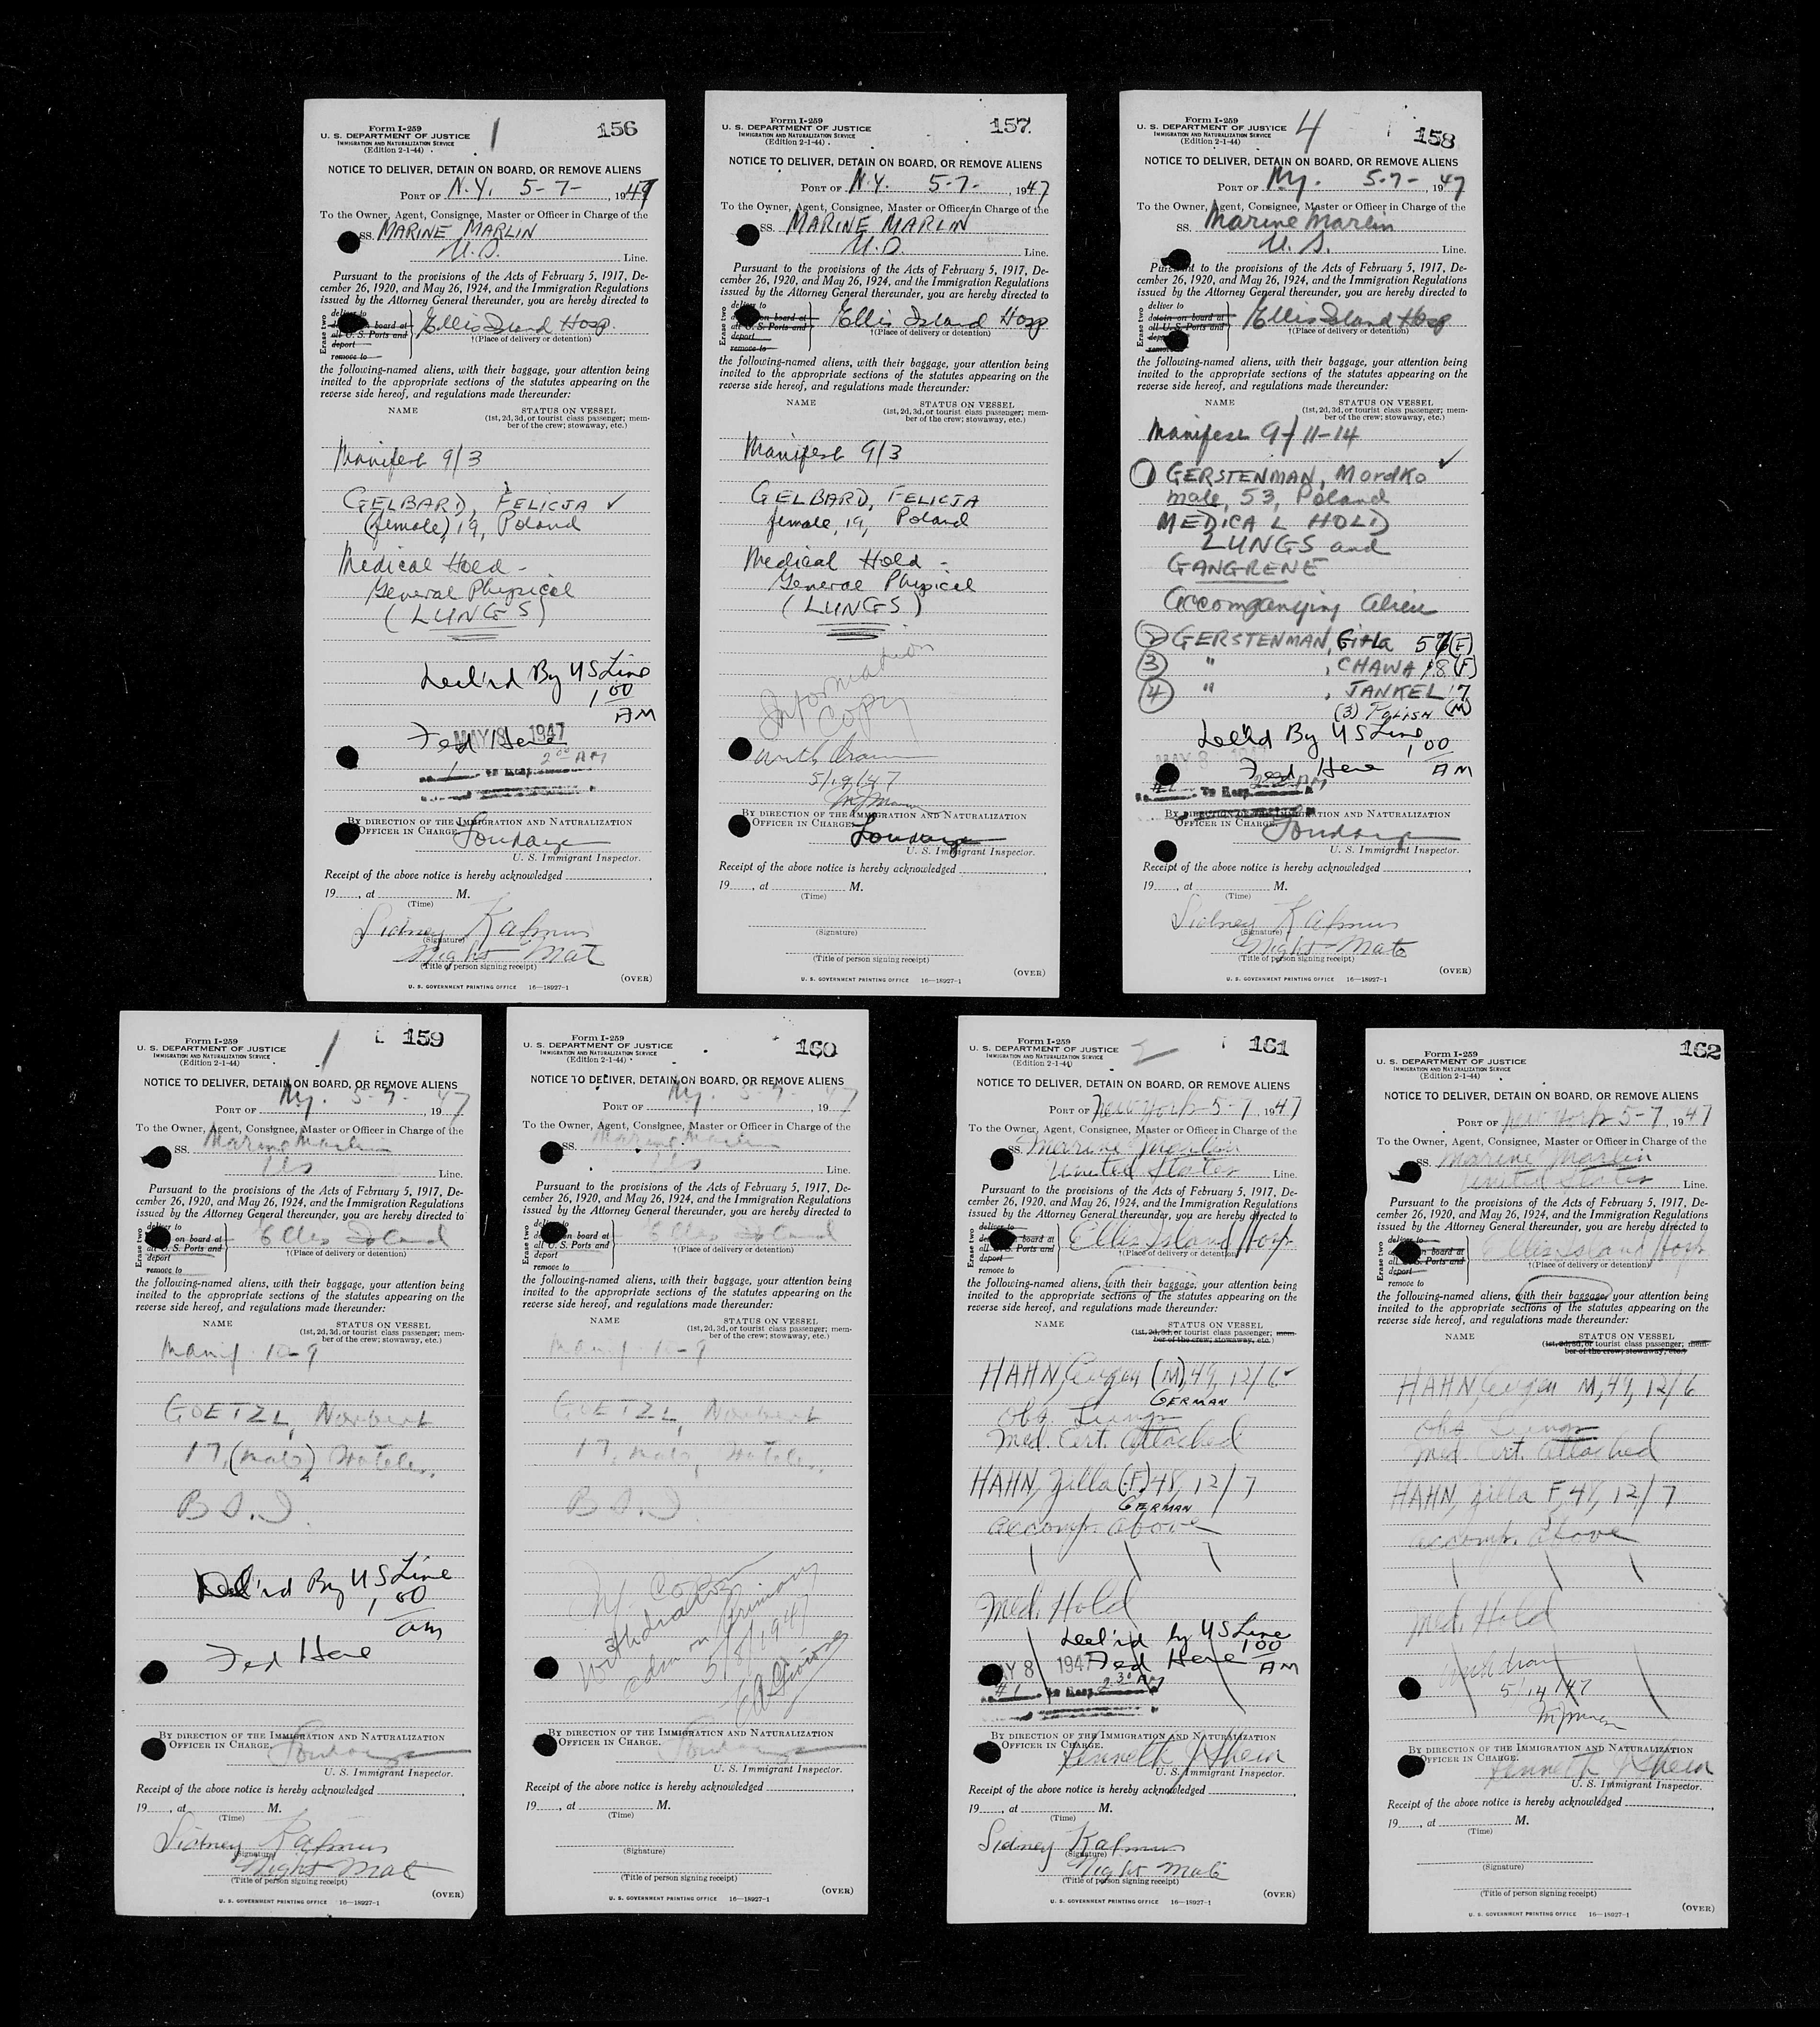 Form I-259
U. S. DEPARTMENT OF JUSTICE
IMMIGRATION AND NATURALIZATION SERVICE
(Edition 2-1-44)
1
156
NOTICE TO DELIVER, DETAIN ON BOARD, OR REMOVE ALIENS
PORT OF N.Y. 5-7-, 1947
To the Owner, Agent, Consignee, Master or Officer in Charge of the
SS. MARINE MARLIN
U.S. Line.
Pursuant to the provisions of the Acts of February 5, 1917, De-
cember 26, 1920, and May 26, 1924, and the Immigration Regulations
issued by the Attorney General thereunder, you are hereby directed to
Erase two
deliver to
board at
all U. S. Ports and
deport
remove to
Ellis Island Hosp.
†(Place of delivery or detention)
the following-named aliens, with their baggage, your attention being
invited to the appropriate sections of the statutes appearing on the
reverse side hereof, and regulations made thereunder:
NAME STATUS ON VESSEL
(1st, 2d, 3d, or tourist class passenger; mem-
ber of the crew; stowaway, etc.)
Manifest 9/3
GELBARD, FELICJA ✓
(female) 19, Poland
Medical Hold -
General Physical
(LUNGS)
Del'rd By US Line
1 00
AM
MAY 8 1947
Fed Here
2 00 AM
1 To Hosp.
BY DIRECTION OF THE IMMIGRATION AND NATURALIZATION
OFFICER IN CHARGE.
U. S. Immigrant Inspector.
Receipt of the above notice is hereby acknowledged
19, at M.
(Time)
Sidney Kalmus
(Signature)
Night Mat
(Title of person signing receipt)
(OVER)
U. S. GOVERNMENT PRINTING OFFICE 16—18927-1
Form I-259
U. S. DEPARTMENT OF JUSTICE
IMMIGRATION AND NATURALIZATION SERVICE
(Edition 2-1-44)
157
NOTICE TO DELIVER, DETAIN ON BOARD, OR REMOVE ALIENS
PORT OF N.Y. 5-7-, 1947
To the Owner, Agent, Consignee, Master or Officer in Charge of the
SS. MARINE MARLIN
U.S. Line.
Pursuant to the provisions of the Acts of February 5, 1917, De-
cember 26, 1920, and May 26, 1924, and the Immigration Regulations
issued by the Attorney General thereunder, you are hereby directed to
Erase two
deliver to
on board at
all U. S. Ports and
deport
remove to
Ellis Island Hosp
†(Place of delivery or detention)
the following-named aliens, with their baggage, your attention being
invited to the appropriate sections of the statutes appearing on the
reverse side hereof, and regulations made thereunder:
NAME STATUS ON VESSEL
(1st, 2d, 3d, or tourist class passenger; mem-
ber of the crew; stowaway, etc.)
Manifest 9/3
GELBARD, FELICJA
female, 19, Poland
Medical Hold -
General Physical
(LUNGS)
Information
Copy
withdrawn
5/19/47
BY DIRECTION OF THE IMMIGRATION AND NATURALIZATION
OFFICER IN CHARGE.
U. S. Immigrant Inspector.
Receipt of the above notice is hereby acknowledged
19, at M.
(Time)
(Signature)
(Title of person signing receipt)
(OVER)
U. S. GOVERNMENT PRINTING OFFICE 16—18927-1
Form I-259
U. S. DEPARTMENT OF JUSTICE
IMMIGRATION AND NATURALIZATION SERVICE
(Edition 2-1-44)
4
158
NOTICE TO DELIVER, DETAIN ON BOARD, OR REMOVE ALIENS
PORT OF Ny. 5-7-, 1947
To the Owner, Agent, Consignee, Master or Officer in Charge of the
SS. Marine Marlin
U. S. Line.
Pursuant to the provisions of the Acts of February 5, 1917, De-
cember 26, 1920, and May 26, 1924, and the Immigration Regulations
issued by the Attorney General thereunder, you are hereby directed to
Erase two
deliver to
detain on board at
all U. S. Ports and
deport
remove to
Ellis Island Hosp
†(Place of delivery or detention)
the following-named aliens, with their baggage, your attention being
invited to the appropriate sections of the statutes appearing on the
reverse side hereof, and regulations made thereunder:
NAME STATUS ON VESSEL
(1st, 2d, 3d, or tourist class passenger; mem-
ber of the crew; stowaway, etc.)
Manifest 9-/11-14
1 GERSTENMAN, Mordko ✓
male, 53, Poland
MEDICAL HOLD
LUNGS and
GANGRENE
Accompanying alien
2 GERSTENMAN, Gitla (F)
3 " , CHAWA 18 (F)
4 " , JANKEL 17
(3) POLISH (M)
Del'rd By US Line
1 00
AM
MAY 8
Fed Here
To Hosp.
BY DIRECTION OF THE IMMIGRATION AND NATURALIZATION
OFFICER IN CHARGE.
U. S. Immigrant Inspector.
Receipt of the above notice is hereby acknowledged
19, at M.
(Time)
Sidney Kalmus
(Signature)
Night Mate
(Title of person signing receipt)
(OVER)
U. S. GOVERNMENT PRINTING OFFICE 16—18927-1
Form I-259
U. S. DEPARTMENT OF JUSTICE
IMMIGRATION AND NATURALIZATION SERVICE
(Edition 2-1-44)
1
159
NOTICE TO DELIVER, DETAIN ON BOARD, OR REMOVE ALIENS
PORT OF Ny. 5-7-, 1947
To the Owner, Agent, Consignee, Master or Officer in Charge of the
SS. Marine Marlin
US Line.
Pursuant to the provisions of the Acts of February 5, 1917, De-
cember 26, 1920, and May 26, 1924, and the Immigration Regulations
issued by the Attorney General thereunder, you are hereby directed to
Erase two
deliver to
on board at
all U. S. Ports and
deport
remove to
Ellis Island
†(Place of delivery or detention)
the following-named aliens, with their baggage, your attention being
invited to the appropriate sections of the statutes appearing on the
reverse side hereof, and regulations made thereunder:
NAME STATUS ON VESSEL
(1st, 2d, 3d, or tourist class passenger; mem-
ber of the crew; stowaway, etc.)
Manif. 10-9
GOETZL, Norbert
17, (male) Stateless.
B S.I.
Del'rd By US Line
1 00
am
Fed Here
BY DIRECTION OF THE IMMIGRATION AND NATURALIZATION
OFFICER IN CHARGE.
U. S. Immigrant Inspector.
Receipt of the above notice is hereby acknowledged
19, at M.
(Time)
Sidney Kalmus
(Signature)
Night Mat
(Title of person signing receipt)
(OVER)
U. S. GOVERNMENT PRINTING OFFICE 16—18927-1
Form I-259
U. S. DEPARTMENT OF JUSTICE
IMMIGRATION AND NATURALIZATION SERVICE
(Edition 2-1-44)
160
NOTICE TO DELIVER, DETAIN ON BOARD, OR REMOVE ALIENS
PORT OF Ny. 5-7-, 1947
To the Owner, Agent, Consignee, Master or Officer in Charge of the
SS. Marine Marlin
US Line.
Pursuant to the provisions of the Acts of February 5, 1917, De-
cember 26, 1920, and May 26, 1924, and the Immigration Regulations
issued by the Attorney General thereunder, you are hereby directed to
Erase two
deliver to
on board at
all U. S. Ports and
deport
remove to
Ellis Island
†(Place of delivery or detention)
the following-named aliens, with their baggage, your attention being
invited to the appropriate sections of the statutes appearing on the
reverse side hereof, and regulations made thereunder:
NAME STATUS ON VESSEL
(1st, 2d, 3d, or tourist class passenger; mem-
ber of the crew; stowaway, etc.)
Manif 10-9
GOETZL, Norbert
17, male, Stateless.
B S.I.
Withdrawn
adm on primary
5/8/1947
BY DIRECTION OF THE IMMIGRATION AND NATURALIZATION
OFFICER IN CHARGE.
U. S. Immigrant Inspector.
Receipt of the above notice is hereby acknowledged
19, at M.
(Time)
(Signature)
(Title of person signing receipt)
(OVER)
U. S. GOVERNMENT PRINTING OFFICE 16—18927-1
Form I-259
U. S. DEPARTMENT OF JUSTICE
IMMIGRATION AND NATURALIZATION SERVICE
(Edition 2-1-44)
2
161
NOTICE TO DELIVER, DETAIN ON BOARD, OR REMOVE ALIENS
PORT OF New York 5-7, 1947
To the Owner, Agent, Consignee, Master or Officer in Charge of the
SS. Marine Marlin
United States Line.
Pursuant to the provisions of the Acts of February 5, 1917, De-
cember 26, 1920, and May 26, 1924, and the Immigration Regulations
issued by the Attorney General thereunder, you are hereby directed to
Erase two
deliver to
board at
all U. S. Ports and
deport
remove to
Ellis Island Hosp
†(Place of delivery or detention)
the following-named aliens, with their baggage, your attention being
invited to the appropriate sections of the statutes appearing on the
reverse side hereof, and regulations made thereunder:
NAME STATUS ON VESSEL
(1st, 2d, 3d, or tourist class passenger; mem-
ber of the crew; stowaway, etc.)
HAHN, Eugen (M), 49, 12/6
GERMAN
Obs. Lungs
Med. Cert. Attached
HAHN, Zilla (F) 48, 12/7
GERMAN
accomp. above
Med. Hold
Del'rd by US Line
1 00
AM
MAY 8 1947
Fed Here
#1 To Hosp. 2 30 AM
BY DIRECTION OF THE IMMIGRATION AND NATURALIZATION
OFFICER IN CHARGE.
Kenneth J Shein
U. S. Immigrant Inspector.
Receipt of the above notice is hereby acknowledged
19, at M.
(Time)
Sidney Kalmus
(Signature)
Night Mate
(Title of person signing receipt)
(OVER)
U. S. GOVERNMENT PRINTING OFFICE 16—18927-1
Form I-259
U. S. DEPARTMENT OF JUSTICE
IMMIGRATION AND NATURALIZATION SERVICE
(Edition 2-1-44)
162
NOTICE TO DELIVER, DETAIN ON BOARD, OR REMOVE ALIENS
PORT OF New York 5-7, 1947
To the Owner, Agent, Consignee, Master or Officer in Charge of the
SS. Marine Marlin
United States Line.
Pursuant to the provisions of the Acts of February 5, 1917, De-
cember 26, 1920, and May 26, 1924, and the Immigration Regulations
issued by the Attorney General thereunder, you are hereby directed to
Erase two
deliver to
on board at
all U. S. Ports and
deport
remove to
Ellis Island Hosp
†(Place of delivery or detention)
the following-named aliens, with their baggage, your attention being
invited to the appropriate sections of the statutes appearing on the
reverse side hereof, and regulations made thereunder:
NAME STATUS ON VESSEL
(1st, 2d, 3d, or tourist class passenger; mem-
ber of the crew; stowaway, etc.)
HAHN Eugen M, 49, 12/6
Obs. Lungs
Med. Cert. Attached
HAHN, Zilla F, 48, 12/7
accomp. above
Med. Hold
withdrawn
5/14/47
BY DIRECTION OF THE IMMIGRATION AND NATURALIZATION
OFFICER IN CHARGE.
Kenneth J Shein
U. S. Immigrant Inspector.
Receipt of the above notice is hereby acknowledged
19, at M.
(Time)
(Signature)
(Title of person signing receipt)
(OVER)
U. S. GOVERNMENT PRINTING OFFICE 16—18927-1